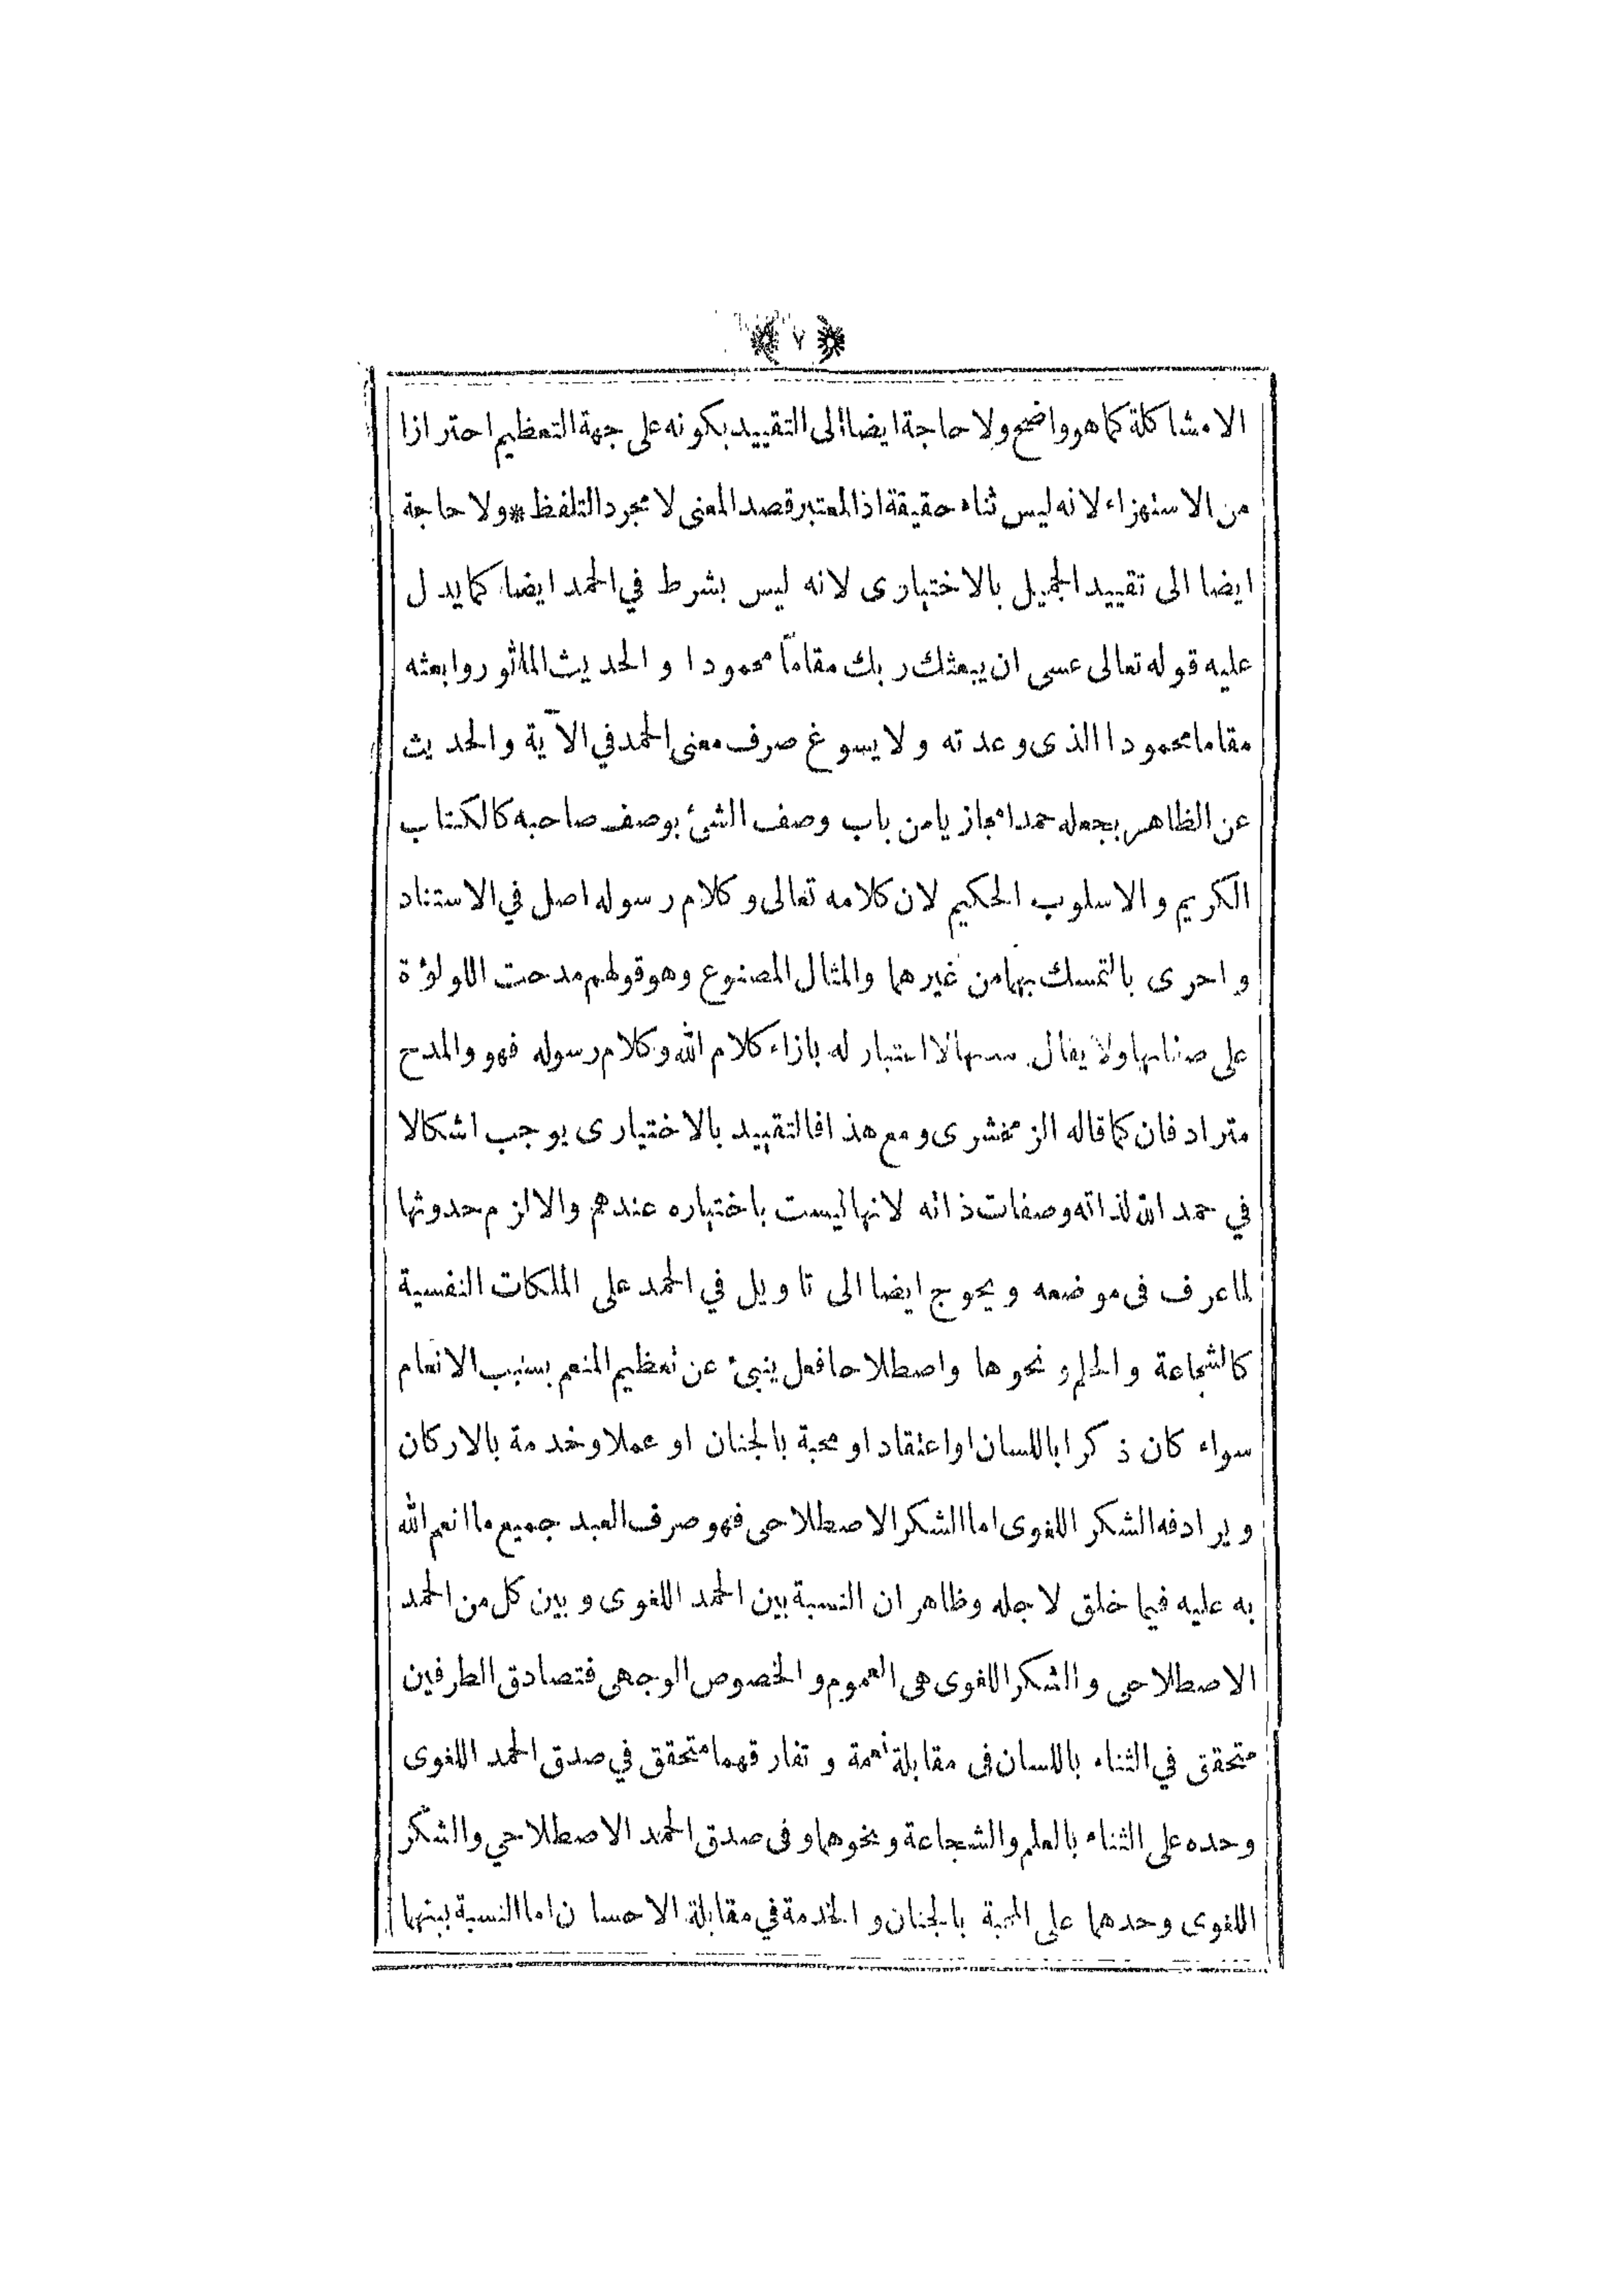 ٧
الا مشاكلة كما هو واضح ولا حاجة ايضا الى التقييد بكونه على جهة التعظيم احترازا
من الاستهزاء لانه ليس ثناء حقيقة اذ المعتبر قصد المعنى لا مجرد التلفظ * ولا حاجة
ايضا الى تقييد الجميل بالاختيارى لانه ليس بشرط في الحمد ايضا كما يدل
عليه قوله تعالى عسى ان يبعثك ربك مقاماً محمودا و الحديث الماثور وابعثه
مقاما محمودا الذى وعدته و لا يسوغ صرف معنى الحمد في الآية والحديث
عن الظاهر بجعله حمدا مجازيا من باب وصف الشئ بوصف صاحبه كالكتاب
الكريم و الاسلوب الحكيم لان كلامه تعالى و كلام رسوله اصل في الاستناد
و احرى بالتمسك بهما من غيرهما والمثال المصنوع وهو قولهم مدحت اللولؤة
على صفائها ولا يقال لا اعتبار له بازاء كلام الله و كلام رسوله فهو والمدح
مترادفان كما قاله الزمخشرى و مع هذا فالتقييد بالاختيارى يوجب اشكالا
في حمد الله لذاته وصفات ذاته لانها ليست باختياره عندهم والا لزم حدوثها
لما عرف فى موضعه و يحوج ايضا الى تاويل في الحمد على الملكات النفسية
كالشجاعة و الحلم و نحوها واصطلاحا فعل ينبئ عن تعظيم المنعم بسبب الانعام
سواء كان ذكرا باللسان او اعتقادا و محبة بالجنان او عملا وخدمة بالاركان
و يرادفه الشكر اللغوى اما الشكر الاصطلاحى فهو صرف العبد جميع ما انعم الله
به عليه فيما خلق لاجله وظاهر ان النسبة بين الحمد اللغوى و بين كل من الحمد
الاصطلاحى و الشكر اللغوى هى العموم و الخصوص الوجهى فتصادق الطرفين
متحقق في الثناء باللسان فى مقابلة نعمة و تفارقهما متحقق في صدق الحمد اللغوى
وحده على الثناء بالعلم والشجاعة و نحوهما و فى صدق الحمد الاصطلاحي والشكر
اللغوى وحدهما على المحبة بالجنان و الخدمة في مقابلة الاحسان اما النسبة بينهما